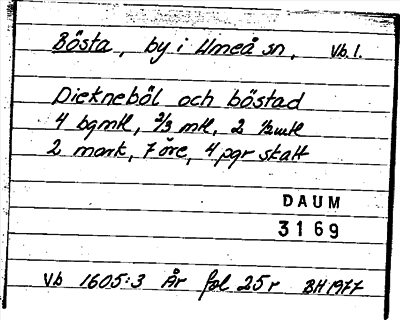 Bösta, by i Umeå sn, Vb. l.
Diekneböl och böstad
4 bgmtl, 2/3 mtl, 2 ½mtl
2 mark, 7 öre, 4 pgr skatt
DAUM
3169
Vb 1605:3 År fol 25r BH 1977